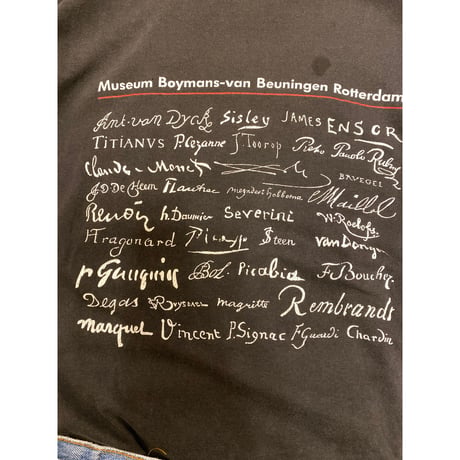 Museum Boymans-van Beuningen Rotterdam
Ant. van Dyck Sisley JAMES ENSOR
TITIANVS P. Cezanne J. Toorop Pietro Pauolo Rubens
Claude Monet BRVEGEL
J.D. De Heem Maillol
Renoir h. Daumier Severini W. Roelofs
Fragonard Picasso Steen van Dongen
P Gauguin Bol. Picabia F. Boucher
Degas Ruysdael magritte Rembrandt
marquet Vincent P. Signac F Guardi Chardin